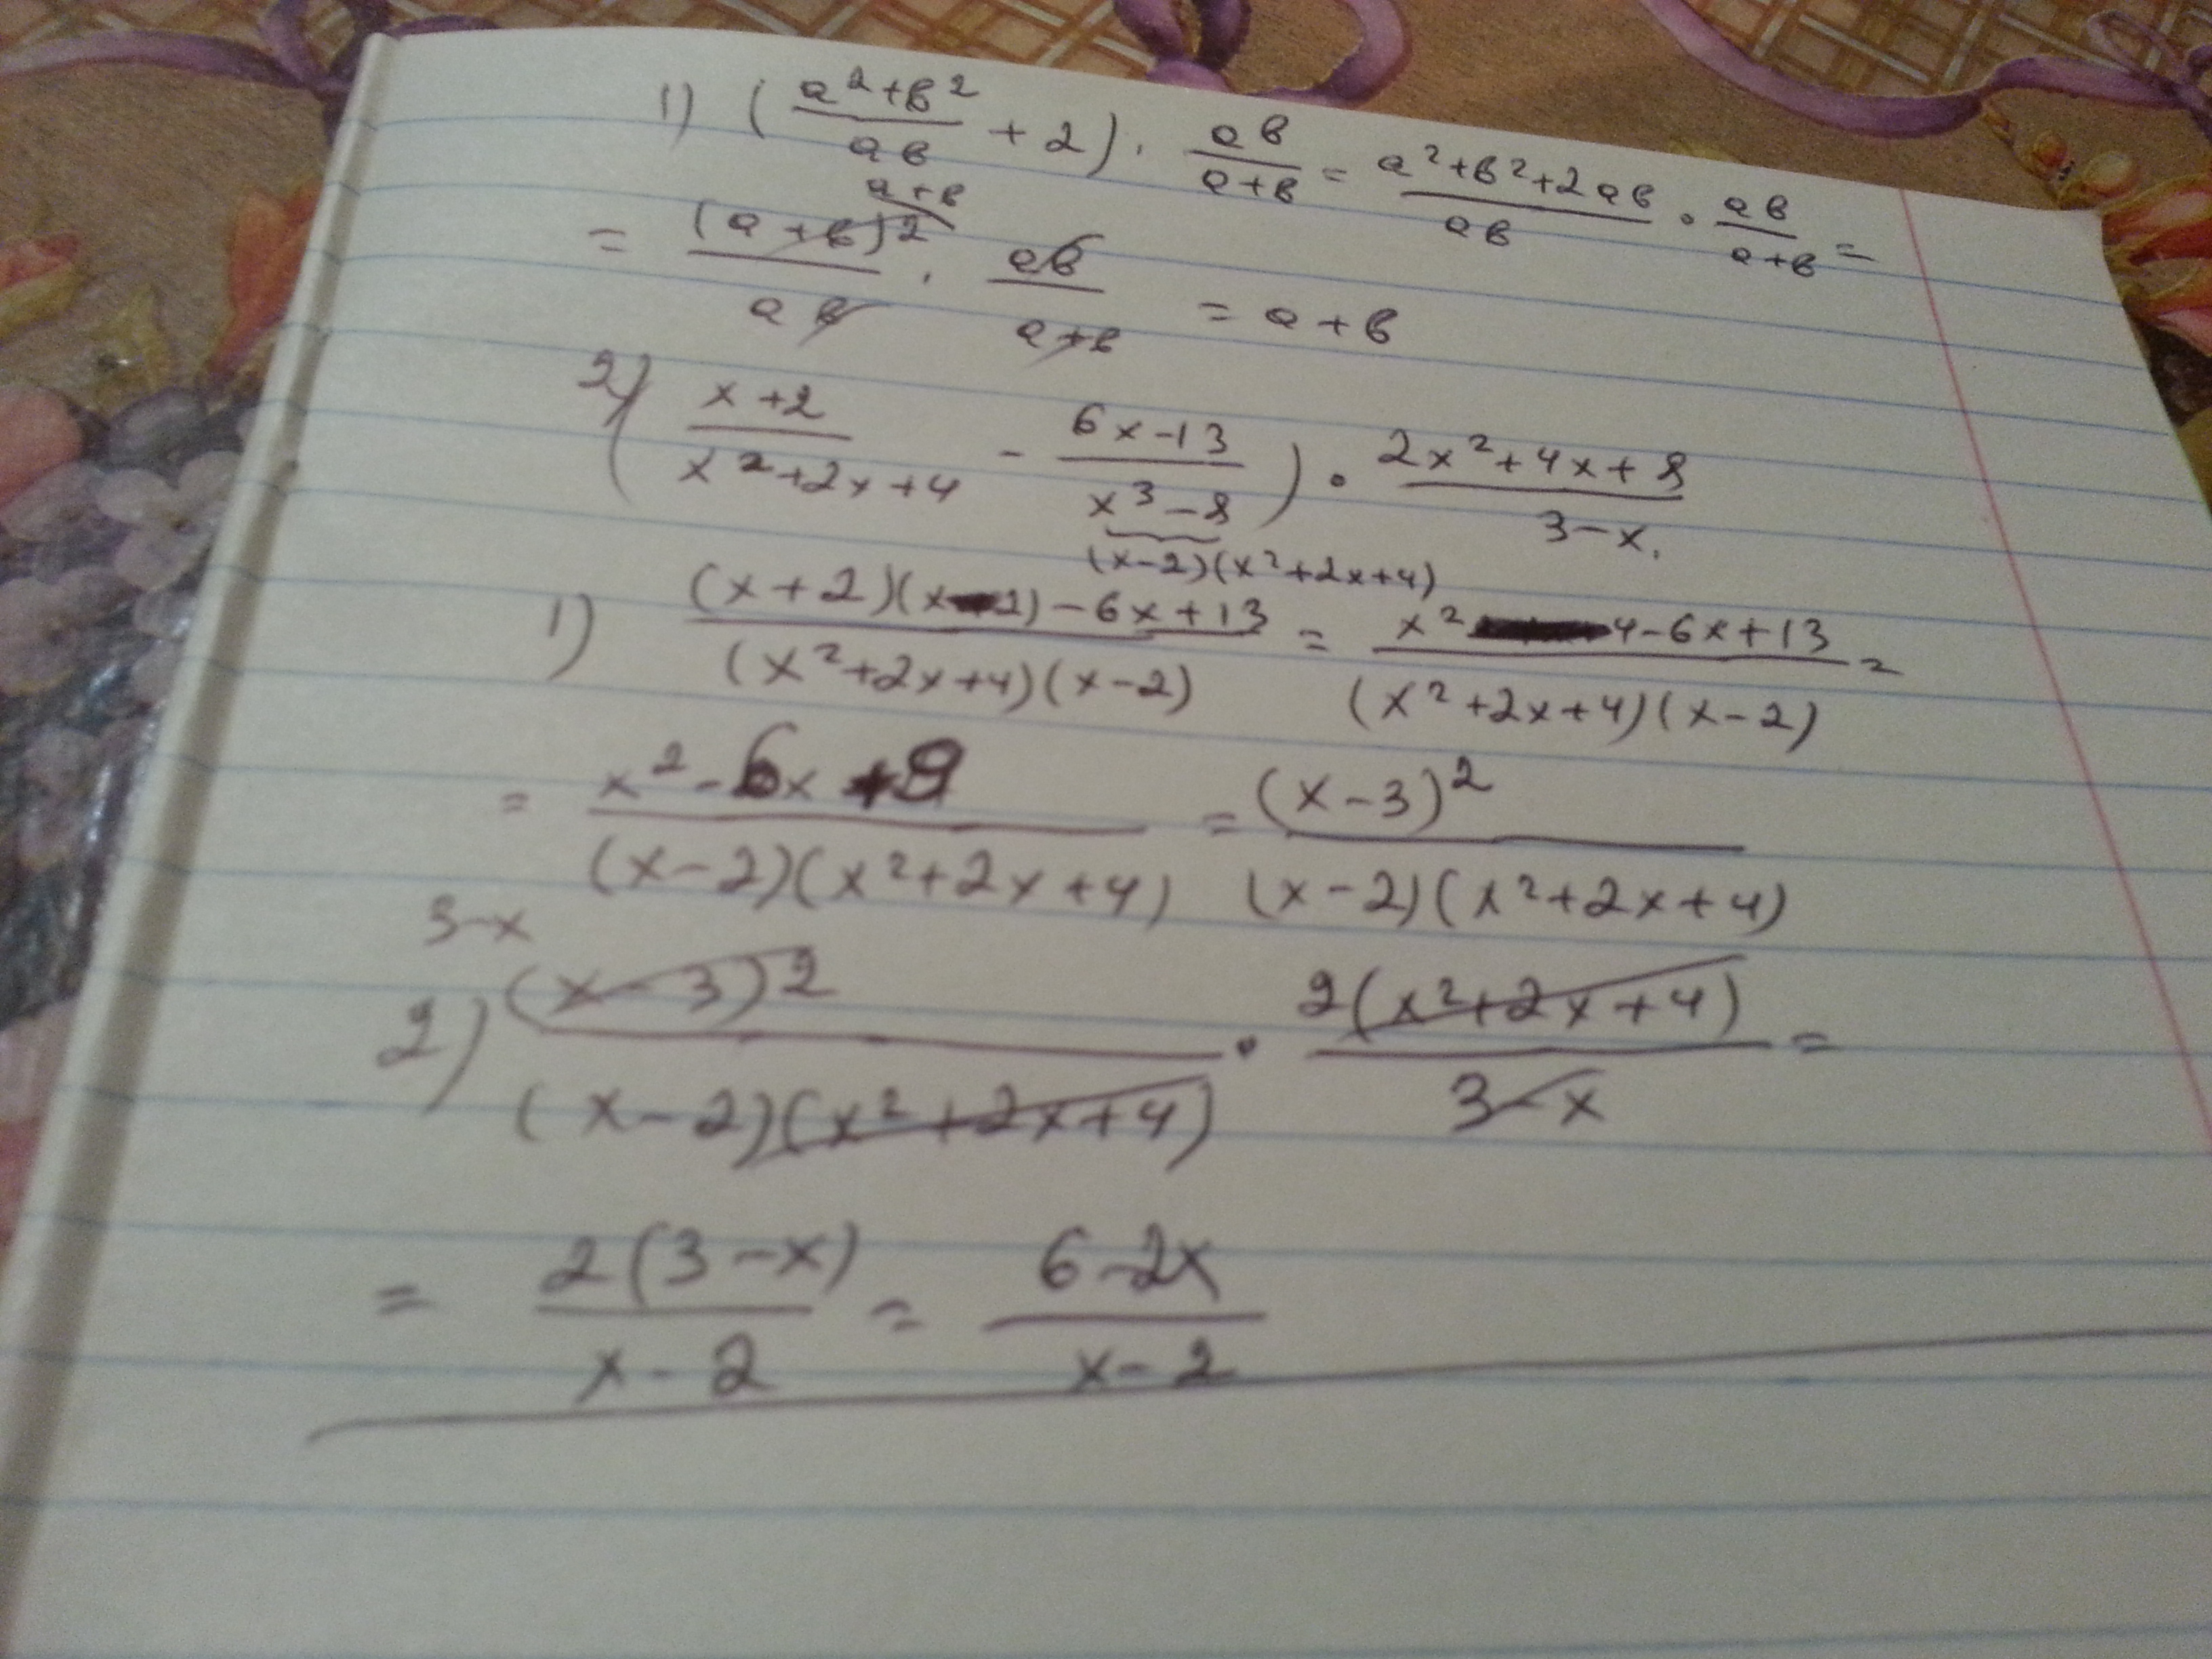 1) ( (a²+в²)/(aв) + 2 ) · (aв)/(a+в) = (a²+в²+2aв)/(aв) · (aв)/(a+в) =
a+в
= (a+в)²/(aв) · (aв)/(a+в) = a+в
2) ( (x+2)/(x²+2x+4) - (6x-13)/(x³-8) ) · (2x²+4x+8)/(3-x).
(x-2)(x²+2x+4)
1) ((x+2)(x-2)-6x+13)/((x²+2x+4)(x-2)) = (x²-4-6x+13)/((x²+2x+4)(x-2)) =
= (x²-6x+9)/((x-2)(x²+2x+4)) = (x-3)²/((x-2)(x²+2x+4))
3-x
2) (x-3)²/((x-2)(x²+2x+4)) · 2(x²+2x+4)/(3-x) =
= 2(3-x)/(x-2) = (6-2x)/(x-2)